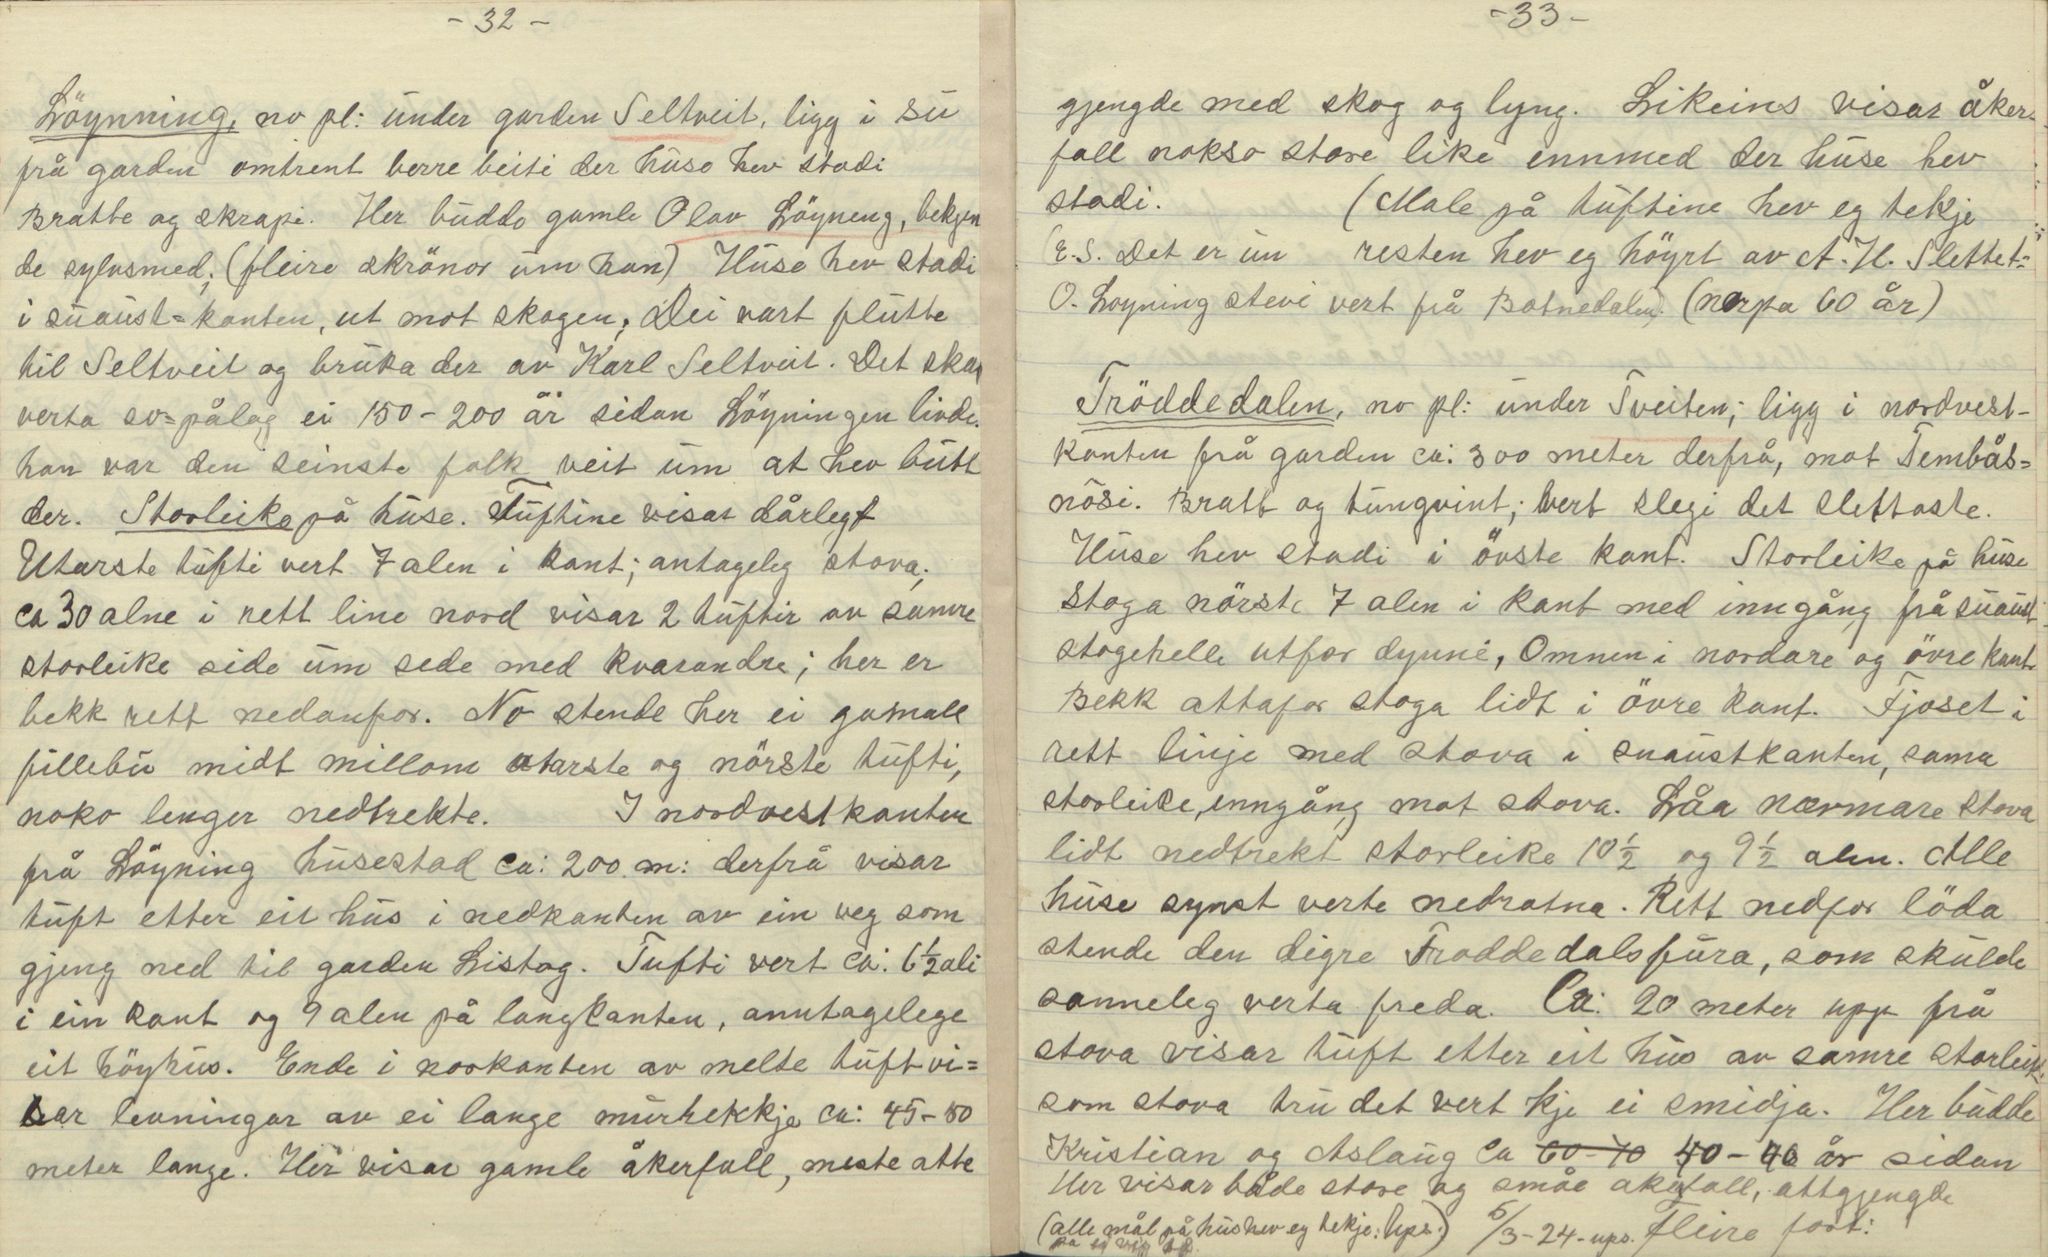 - 32 -
Löynning, no pl: under garden Seltveit, ligg i su
frå garden omtrent berre beiti der huso hev stadi
Bratte og skrapi. Her buddo gamle Olav Löyneng, bekjen
de sylvsmed, (fleire skrönor um han) Huso hev stadi
i suaust=kanten, ut mot skogen, Dei vart flutte
til Seltveit og bruka der av Karl Seltveit. Det skar
verta so=pålag ei 150-200 år sidan Löyningen livde.
han var den seinste folk veit um at hev butt
der. Storleike på huse. Tuftine visar dårlegt
Utarste tufti vert 7 alen i kant; antageleg stova;
ca 30 alne i rett line nord visar 2 tuftir av samre
storleike side um sede med kvarandre; her er
bekk rett nedanfor. No stende her ei gamall
fillebu midt millom utarste og nörste tufti,
noko lenger nedtrekte. I nordvestkanten
frå Löyning husestad ca: 200 m: derfrå visar
tuft etter eit hus i nedkanten av ein veg som
gjeng ned til garden Listog. Tufti vert ca: 6 1/2 ali
i ein kant og 9 alen på langkanten, anntagelege
eit höyhus. Ende i norkanten av melte tuft vi=
sar levningar av ei lange murrekkje ca: 45-50
meter lange. Her visar gamle åkerfall, meste atte
- 33 -
gjengde med skog og lyng. Likeins visar åker-
fall nokso store like ennmed der huse hev
stadi. (Male på tuftine hev eg tekje
(E.S. Det er un resten hev eg höyrt av A. H. Slettet=
O. Loyning stevi vert frå Botnedalen. (norpa 60 år)
Tröddedalen, no pl: under Tveiten; ligg i nordvest-
kanten frå garden ca: 300 meter derfrå, mot Tembås=
nösi. Bratt og tungvint; vert slegi det slettaste.
Huse hev stadi i övste kant. Storleike på huse
Stoga nörste 7 alen i kant med inngång frå suaust
stogehelle utfor dynni, Omnen i nordare og övre kant
Bekk attafor stoga lidt i övre kant. Fjoset i
rett linje med stova i suaustkanten, sama
storleike, inngång mot stova. Låa nærmare stova
lidt nedtrekt storleike 10 1/2 og 9 1/2 alen. Alle
huse synst verte nedratna. Rett nedfor löda
stende den digre Troddedalsfura, som skulde
sanneleg verta freda. Ca: 20 meter upp frå
stova visar tuft etter eit hus av samre storleik.
som stova tru det vert kje ei smidja. Her budde
Kristian og Aslaug ca 60-70 40-40 år sidan
Her visar både store og småe akefall, attgjengde
(alle mål på hus hev eg tekje: ups.) 5/3-24-ups. Fleire fort: